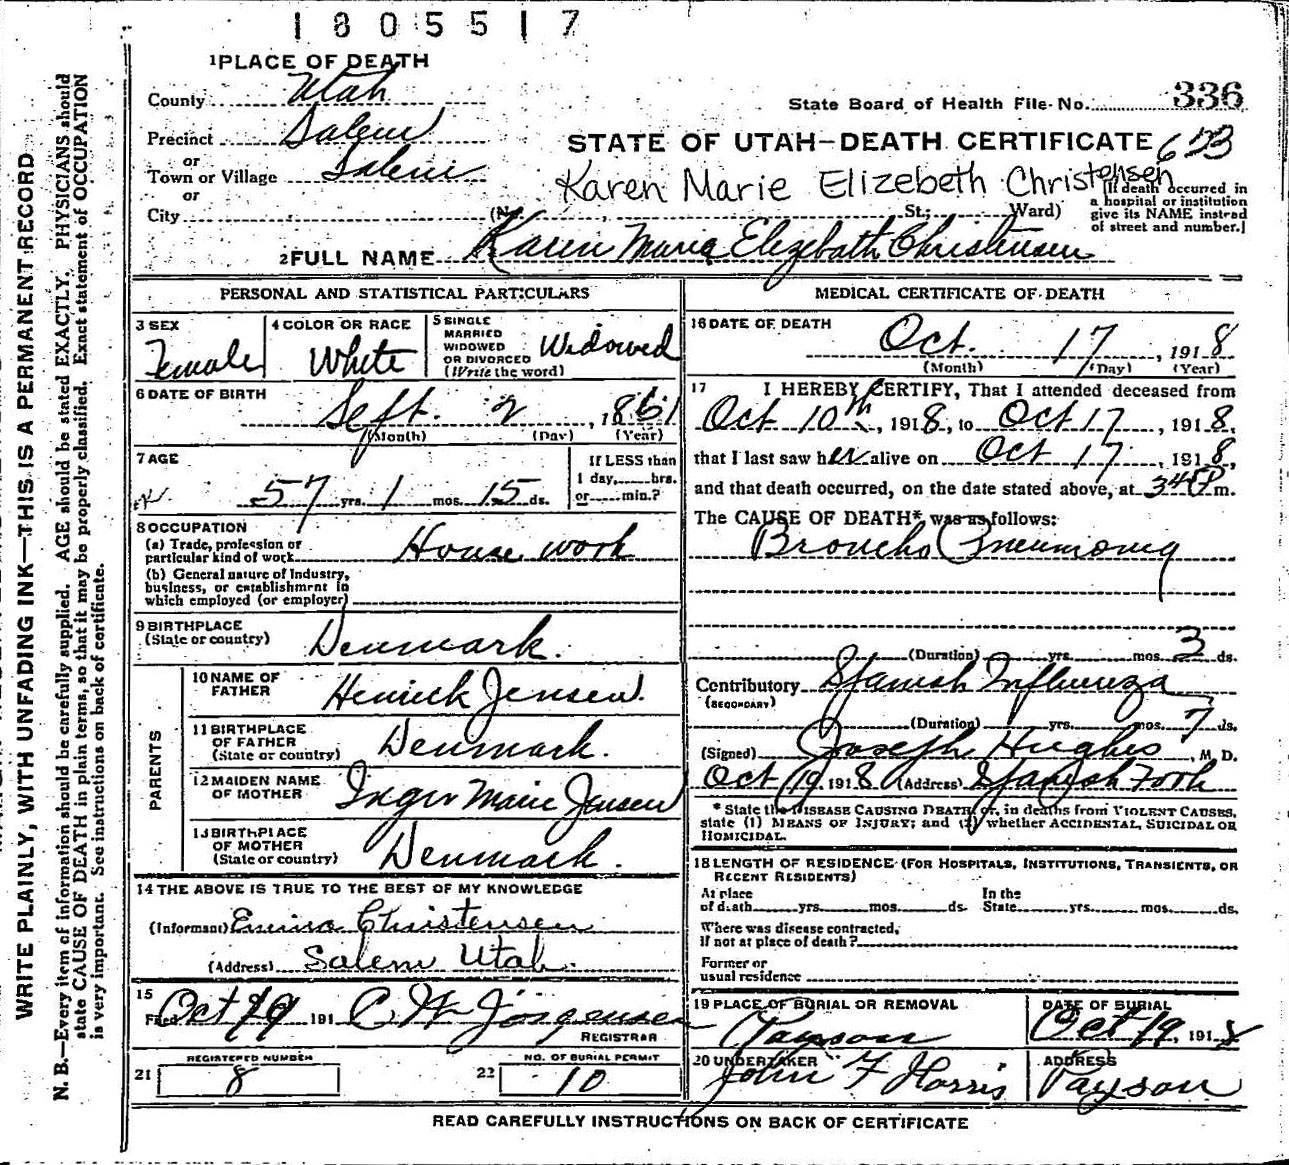 1805517
1 PLACE OF DEATH
County Utah
State Board of Health File No. 336
Precinct Salem
STATE OF UTAH—DEATH CERTIFICATE
or
Town or Village Salem
Karen Marie Elizebeth Christensen
or
City (No. , St.; Ward)
[If death occurred in
a hospital or institution
give its NAME instead
of street and number.]
2 FULL NAME Karen Marie Elizebath Christensen
PERSONAL AND STATISTICAL PARTICULARS
3 SEX
Female
4 COLOR OR RACE
White
5 SINGLE
MARRIED
WIDOWED
OR DIVORCED
(Write the word)
Widowed
6 DATE OF BIRTH
Sept. 2, 1861
(Month) (Day) (Year)
7 AGE
57 yrs. 1 mos. 15 ds.
If LESS than
1 day, hrs.
or min.?
8 OCCUPATION
(a) Trade, profession or
particular kind of work House work
(b) General nature of Industry,
business, or establishment in
which employed (or employer)
9 BIRTHPLACE
(State or country) Denmark.
PARENTS
10 NAME OF
FATHER Henrick Jensen.
11 BIRTHPLACE
OF FATHER
(State or country) Denmark.
12 MAIDEN NAME
OF MOTHER Inger Marie Jensen
13 BIRTHPLACE
OF MOTHER
(State or country) Denmark.
14 THE ABOVE IS TRUE TO THE BEST OF MY KNOWLEDGE
(Informant) Emina Christensen
(Address) Salem Utah.
15
Filed Oct 19 191 C W Jorgensen
REGISTRAR
REGISTERED NUMBER
21 8
NO. OF BURIAL PERMIT
22 10
MEDICAL CERTIFICATE OF DEATH
16 DATE OF DEATH
Oct. 17, 1918
(Month) (Day) (Year)
17 I HEREBY CERTIFY, That I attended deceased from
Oct 10th, 1918, to Oct 17, 1918,
that I last saw her alive on Oct 17, 1918,
and that death occurred, on the date stated above, at 345P m.
The CAUSE OF DEATH* was as follows:
Broncho Pneumonia
(Duration) yrs. mos. 3 ds.
Contributory Spanish Influenza
(SECONDARY)
(Duration) yrs. mos. 7 ds.
(Signed) Joseph Hughes, M D.
Oct 19 1918 (Address) Spanish Fork
* State the DISEASE CAUSING DEATH, or, in deaths from VIOLENT CAUSES,
state (1) MEANS OF INJURY; and (2) whether ACCIDENTAL, SUICIDAL OR
HOMICIDAL.
18 LENGTH OF RESIDENCE (FOR HOSPITALS, INSTITUTIONS, TRANSIENTS, OR
RECENT RESIDENTS)
At place
of death yrs. mos. ds.
In the
State yrs. mos. ds.
Where was disease contracted,
If not at place of death?
Former or
usual residence
19 PLACE OF BURIAL OR REMOVAL
Payson
DATE OF BURIAL
Oct 19, 1918
20 UNDERTAKER
John F Harris
ADDRESS
Payson
READ CAREFULLY INSTRUCTIONS ON BACK OF CERTIFICATE
WRITE PLAINLY, WITH UNFADING INK—THIS IS A PERMANENT RECORD
N. B.—Every item of information should be carefully supplied. AGE should be stated EXACTLY. PHYSICIANS should
state CAUSE OF DEATH in plain terms, so that it may be properly classified. Exact statement of OCCUPATION
is very important. See instructions on back of certificate.